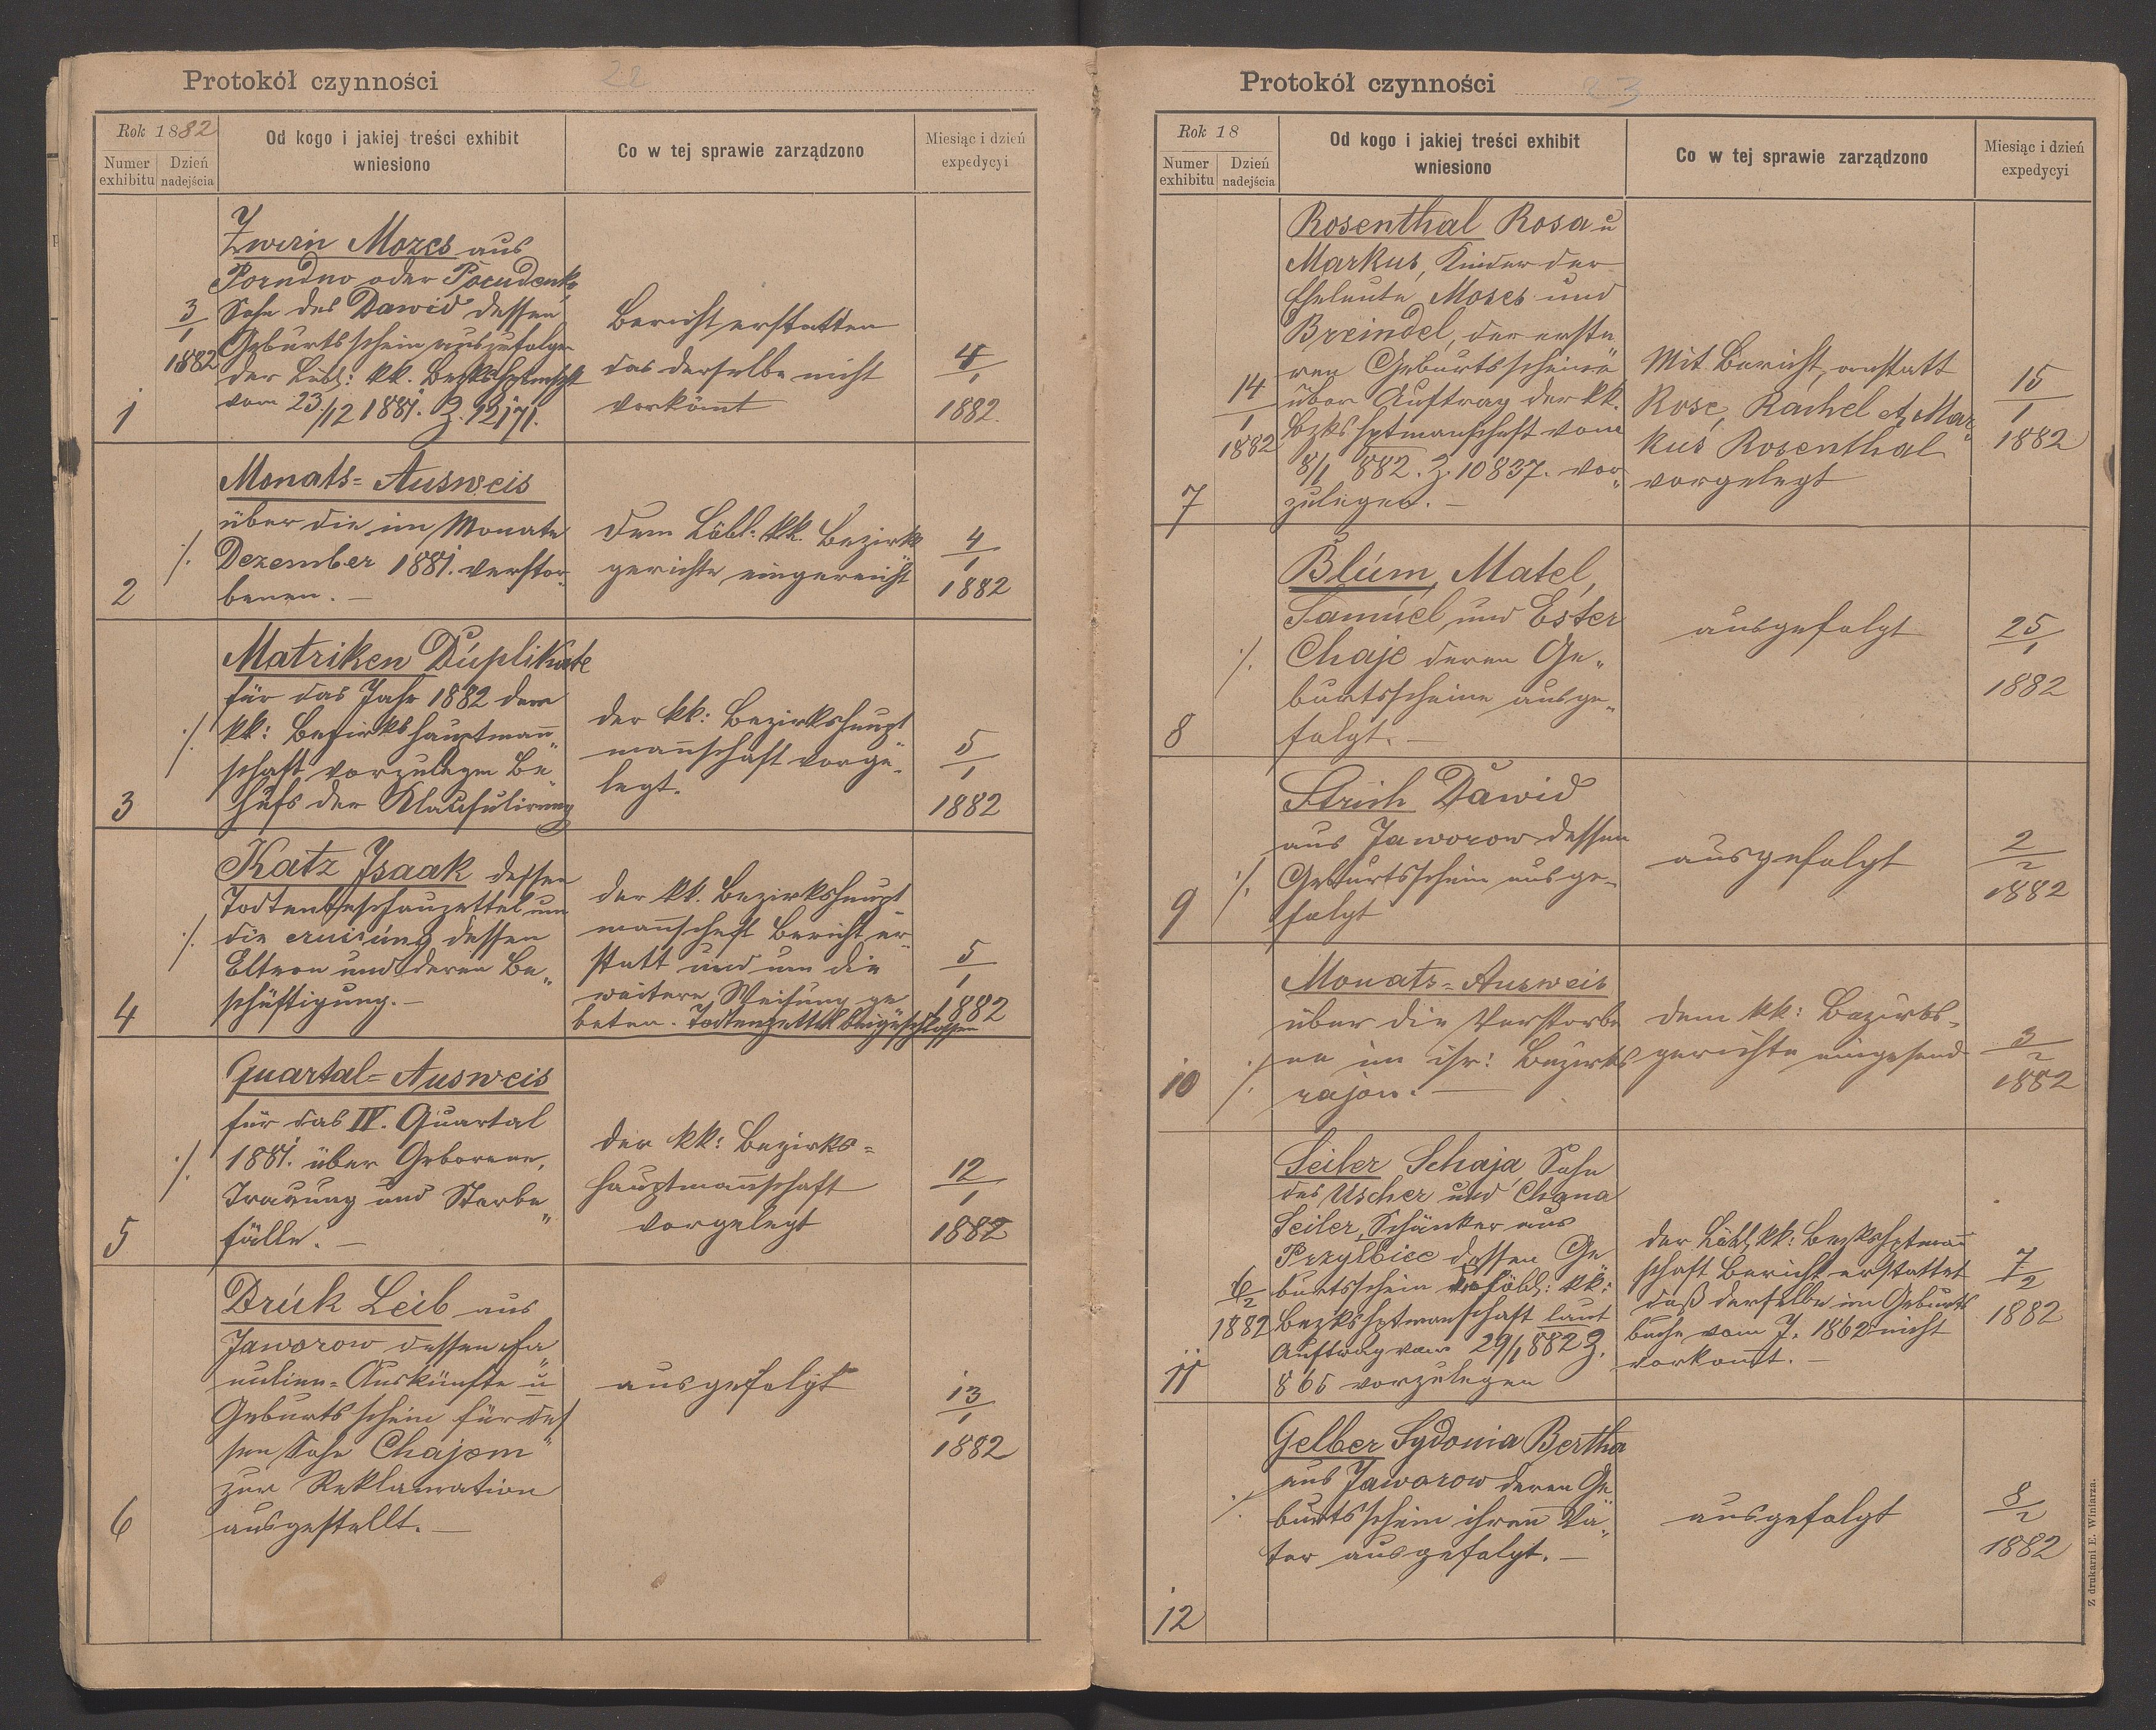 Protokół czynności 22
Rok 1882
Numer exhibitu
Dzień nadejścia
Od kogo i jakiej treści exhibit
wniesiono
Co w tej sprawie zarządzono
Miesiąc i dzień
expedycyi
1
3/1
1882
Zwirn Mozes aus
Porudno oder Porudenko
Sohn des Dawid dessen
Geburtsschein auszufolgen
der Löbl: kk. Bezkshptmschft
vom 23/12 1881. Z. 12171.
Bericht erstatten
das derselbe nicht
vorkömt
4/1
1882.
2
./.
Monats=Ausweis
über die im Monate
Dezember 1881. verstor„
benen. –
Dem Löbl: kk. Bezirks
gerichte eingereicht
4/1
1882
3
./.
Matriken Duplikate
für das Jahr 1882 dem
kk: Bezirkshauptmann„
schaft vorzulegen Be„
hufs der Klausulirung
der kk: Bezirkshaupt
mannschaft vorge„
legt.
5/1
1882
4
./.
Katz Isaak dessen
Todtenbeschauzettel um
die eruirung dessen
Eltern und deren Be„
schäftigung. –
der kk. Bezirkshaupt
mannschaft Bericht er„
statt und um die
weitere Weisung ge
beten. Todtenzettel beigeschlossen
5/1
1882
5
./.
Quartal=Ausweis
für das IV. Quartal
1881. über Geborene,
Trauung und Sterbe„
fälle. –
der kk: Bezirks=
hauptmannschaft
vorgelegt
12/1
1882
6
Druk Leib aus
Jaworow dessen Fa
milien=Auskünfte u
Geburtsschein für des
sen Sohn Chajem
zur Reklamation
ausgestellt. –
ausgefolgt
13/1
1882
Protokół czynności 23
Rok 18
Numer exhibitu
Dzień nadejścia
Od kogo i jakiej treści exhibit
wniesiono
Co w tej sprawie zarządzono
Miesiąc i dzień
expedycyi
7
14/1
1882
Rosenthal Rosa u
Markus, Kinder der
Eheleute Moses und
Breindel, der erste
ren Geburtsscheine
über Auftrag der kk.
Bzkshptmanschaft vom
8/1 882. Z. 10837. vor„
zulegen. –
Mit Bericht, anstatt
Rose, Rachel et Mar„
kus Rosenthal
vorgelegt
15/1
1882
8
./.
Blum, Matel,
Samuel, und Ester
Chaje deren Ge„
burtsscheine ausge„
folgt. –
ausgefolgt
25/1
1882
9
./.
Strich Dawid
aus Jaworow dessen
Geburtsschein ausge„
folgt
ausgefolgt
2/2
1882
10
./.
Monats=Ausweis
über die Verstorbe
ne im isr: Bezirks
rajon. –
dem kk: Bezirks„
gerichte eingesend
3/2
1882
11
6/2
1882
Seiler Schaja, Sohn
des Uscher und Chana
Seiler, Schänker aus
Przylbice dessen Ge
burtsschein der löbl: kk:
Bezkshptmanschaft laut
Auftrag vom 29/1 882 Z.
865 vorzulegen
der Löbl, kk: Bezkshptmann
schaft Bericht erstattet
daß derselbe im Geburts
buche vom J. 1862 nicht
vorkomt. –
7/2
1882
12
./.
Gelber Sydonia Bertha
aus Jaworow deren Ge
burtsschein ihren Va„
ter ausgefolgt. –
ausgefolgt
8/2
1882
Z drukarni E. Winiarza.